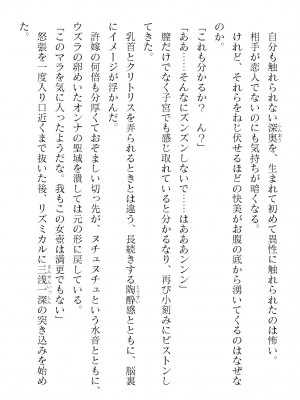 自分も触れられない深奥を、生まれて初めて異性に触れられたのは怖い。
相手が恋人でないのにも気持ちが暗くなる。
けれど、それらをねじ伏せるほどの快美がお腹の底から湧いてくるのはなぜな
のか。
「これも分かるか？　ん？」
「ああ……そんなにズンズンしないで……はあああンンン」
膣だけでなく子宮でも感じ取れていると分かるなり、再び小刻みにピストンし
てきた。
乳首とクリトリスを弄られるときとは違う、長続きする陶酔感とともに、脳裏
にイメージが浮かんだ。
許嫁の何倍も分厚くておぞましい切っ先が、ヌチュヌチュという水音とともに、
ウズラの卵めいたオンナの聖域を潰しては元の形に戻している。
「このマラを気に入ったようだな。我もこの女壺は満更でもない」
怒張を一度入り口近くまで抜いた後、リズミカルに三浅一深の突き込みを始め
た。